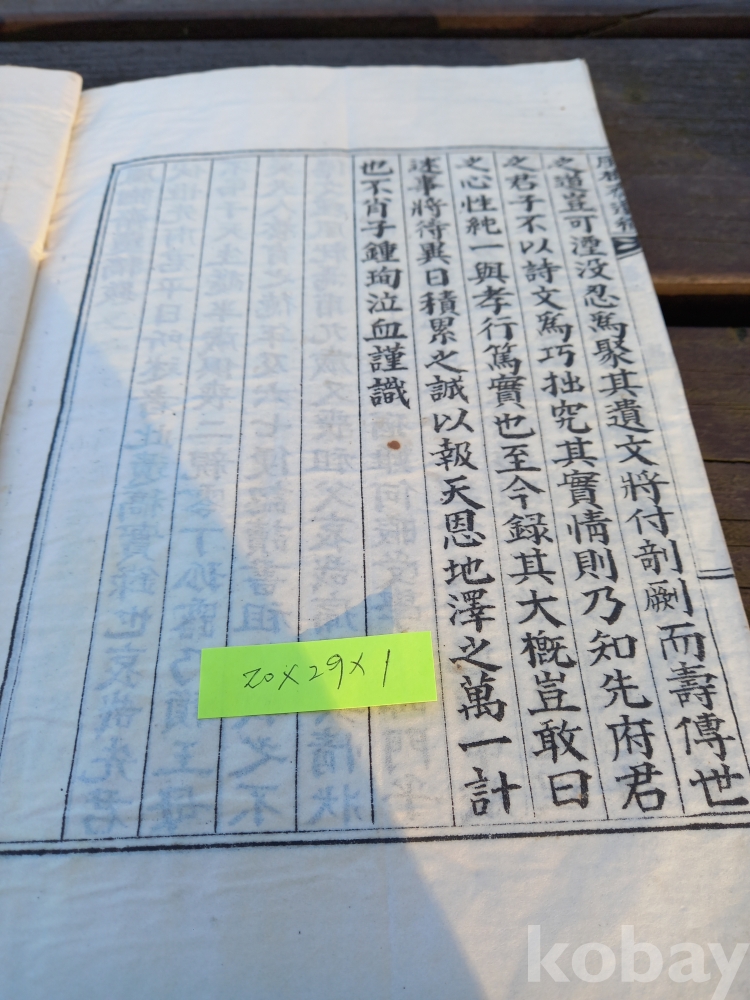 之道豈可湮没忍爲聚其遺文將付剞劂而壽傳世
之君子不以詩文爲巧拙究其實情則乃知先府君
之心性純一與孝行篤實也至今録其大概豈敢曰
述事將待異日積累之誠以報天恩地澤之萬一計
也不肖子鍾珣泣血謹識
20×29×1
kobay